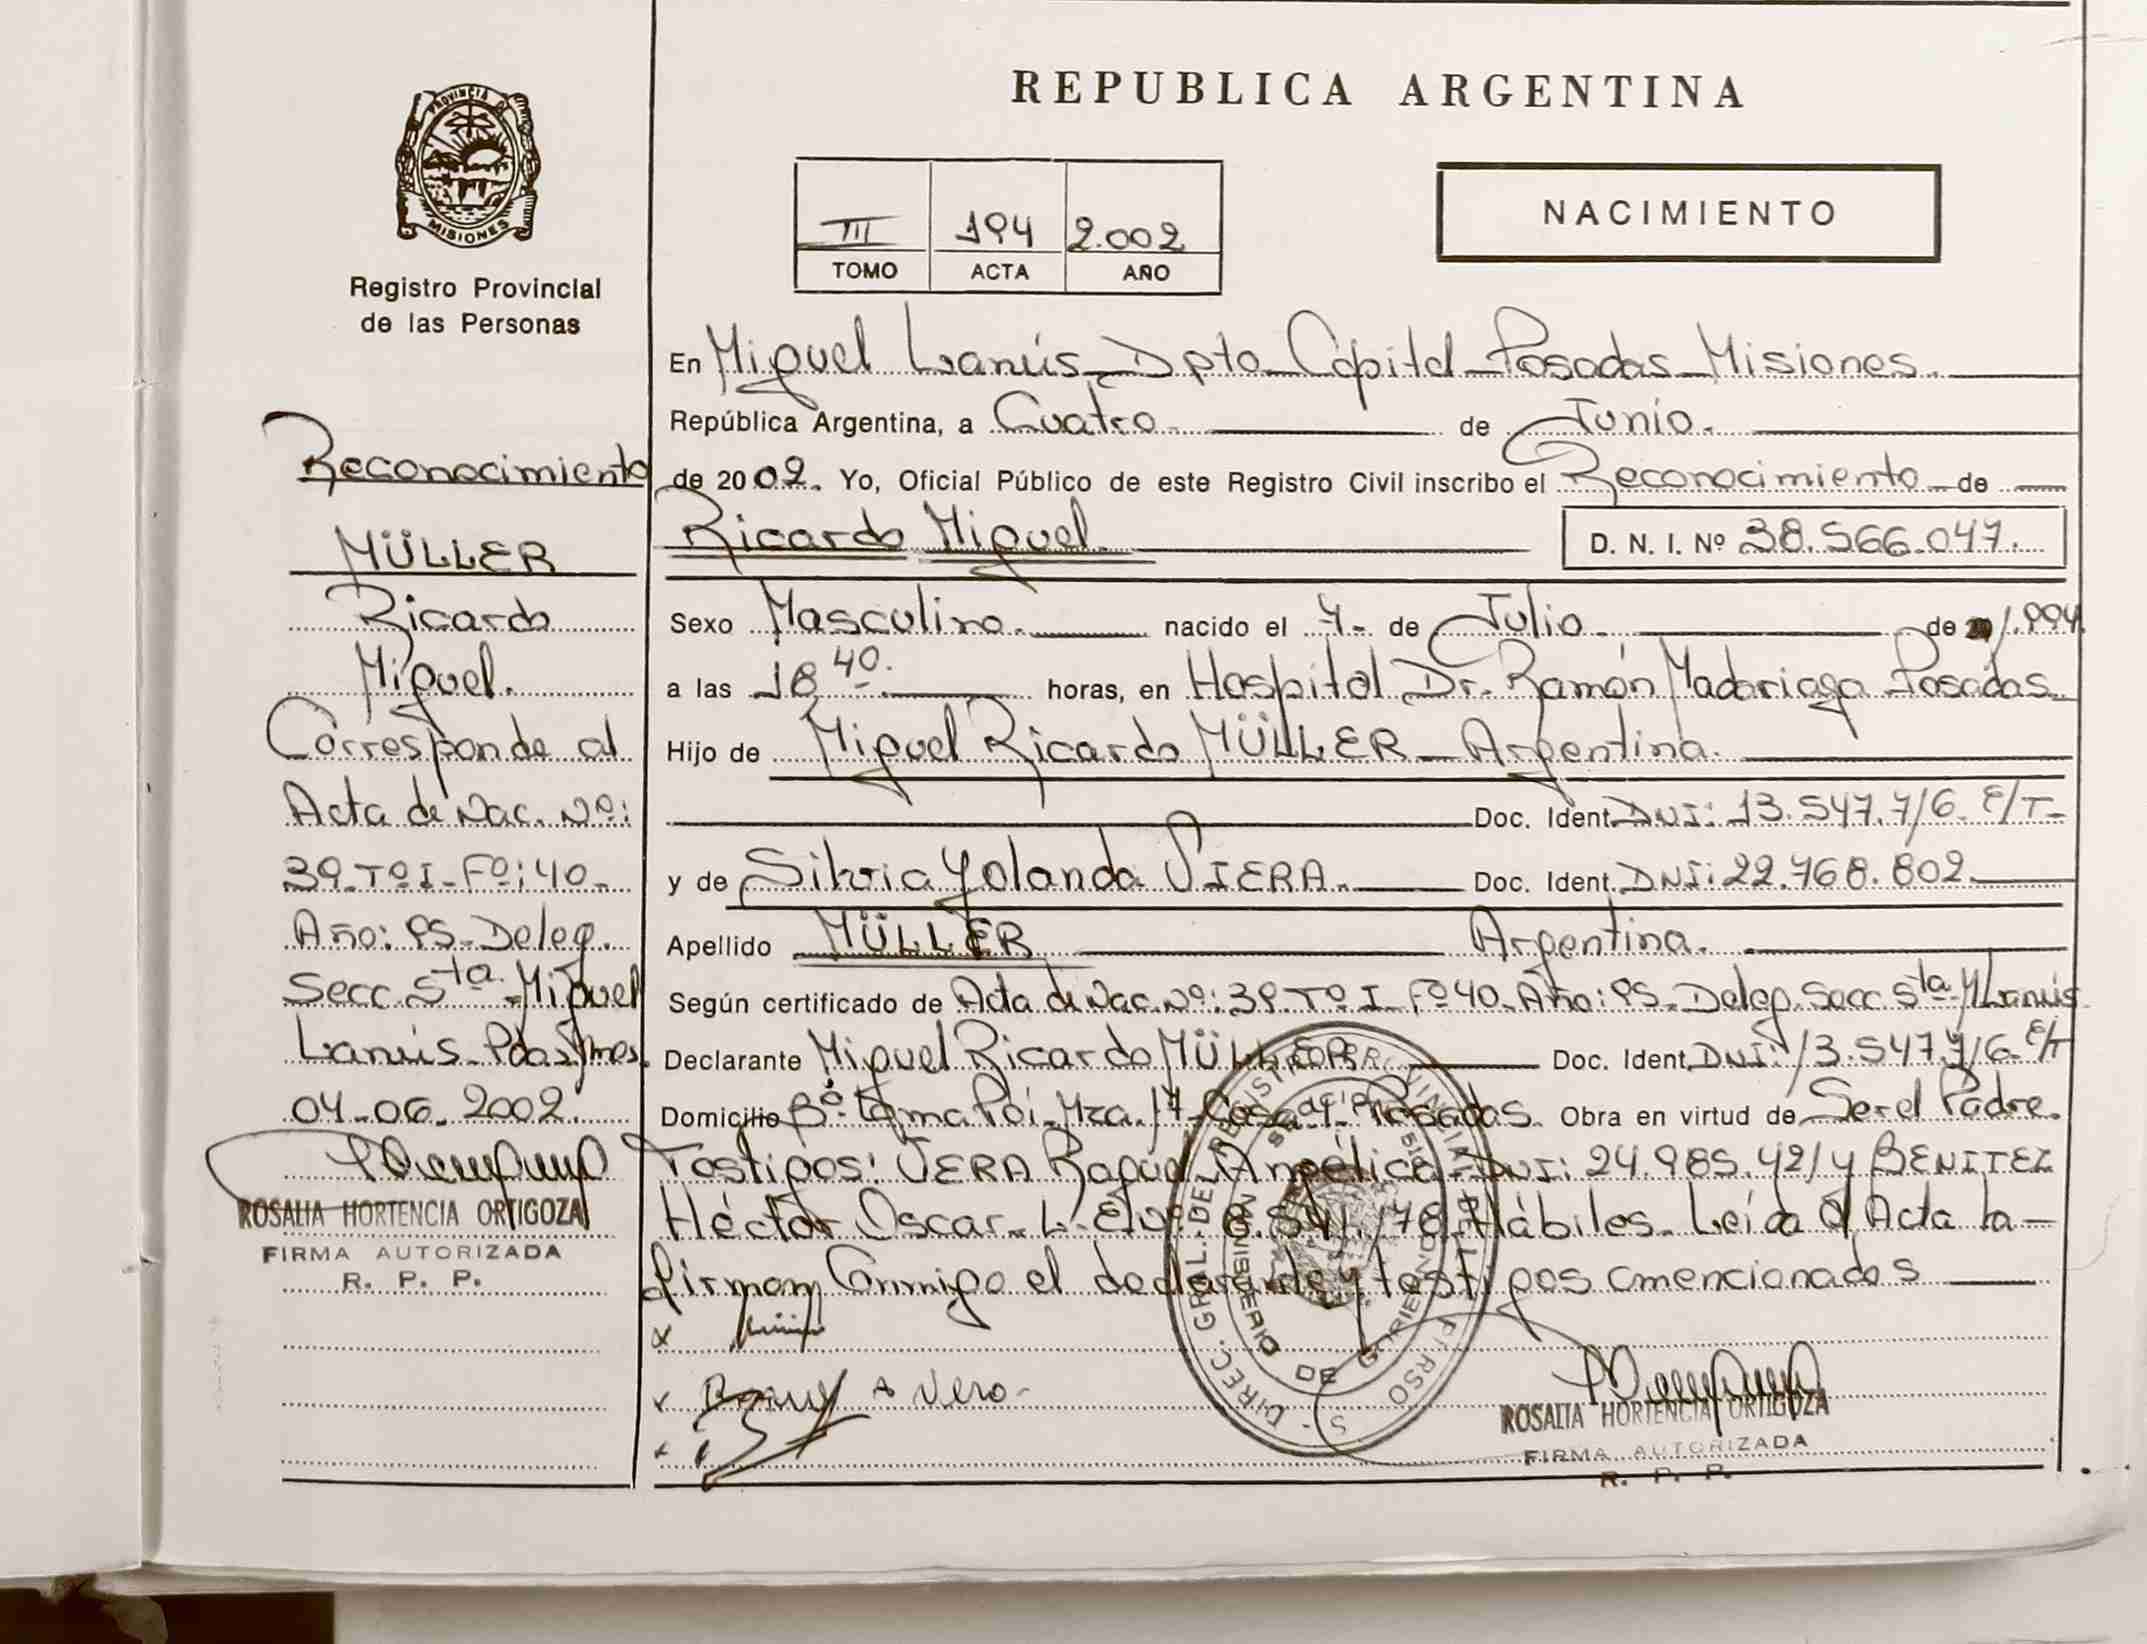 REPUBLICA ARGENTINA
PROVINCIA DE
MISIONES
Registro Provincial
de las Personas
III 194 2.002
TOMO ACTA AÑO
NACIMIENTO
Reconocimiento
MÜLLER
Ricardo
Miguel.
Corresponde al
Acta de Nac. Nº:
39-Tº I-Fº:40-
Año: 95-Deleg.
Secc. 5ta. Miguel
Lanús-Pdas Mnes.
04-06-2002.
ROSALIA HORTENCIA ORTIGOZA
FIRMA AUTORIZADA
R. P. P.
En Miguel Lanús, Dpto Capital Posadas Misiones.
República Argentina, a Cuatro de Junio.
de 2002. Yo, Oficial Público de este Registro Civil inscribo el Reconocimiento de
Ricardo Miguel. D. N. I. Nº 38.566.047.
Sexo Masculino. nacido el 7- de Julio de 1.994.
a las 18 40. horas, en Hospital Dr. Ramón Madariaga Posadas.
Hijo de Miguel Ricardo MÜLLER - Argentina.
Doc. Ident. DNI: 13.547.716. E/T-
y de Silvia Yolanda VIERA. Doc. Ident. DNI: 22.768.802.
Apellido MÜLLER Argentina.
Según certificado de Acta de Nac. Nº: 39-Tº I-Fº 40-Año: 95-Deleg. Secc. 5ta M Lanús
Declarante Miguel Ricardo MÜLLER Doc. Ident. DNI: 13.547.716. E/T
Domicilio Bº Poi-Mza. 17-Casa Posadas. Obra en virtud de Ser el Padre.
Testigos: VERA Raquel Angélica-DNI: 24.985.421 y BENITEZ
Héctor Oscar-L.E. Nº: 8.541.178. Hábiles. Leída el Acta la-
firman Conmigo el declarante y testigos amencionados
DIREC. GRAL. DE REGISTRO PROVINCIAL DE LAS PERSONAS
MINISTERIO DE GOBIERNO
ROSALIA HORTENCIA ORTIGOZA
FIRMA AUTORIZADA
R. P. P.